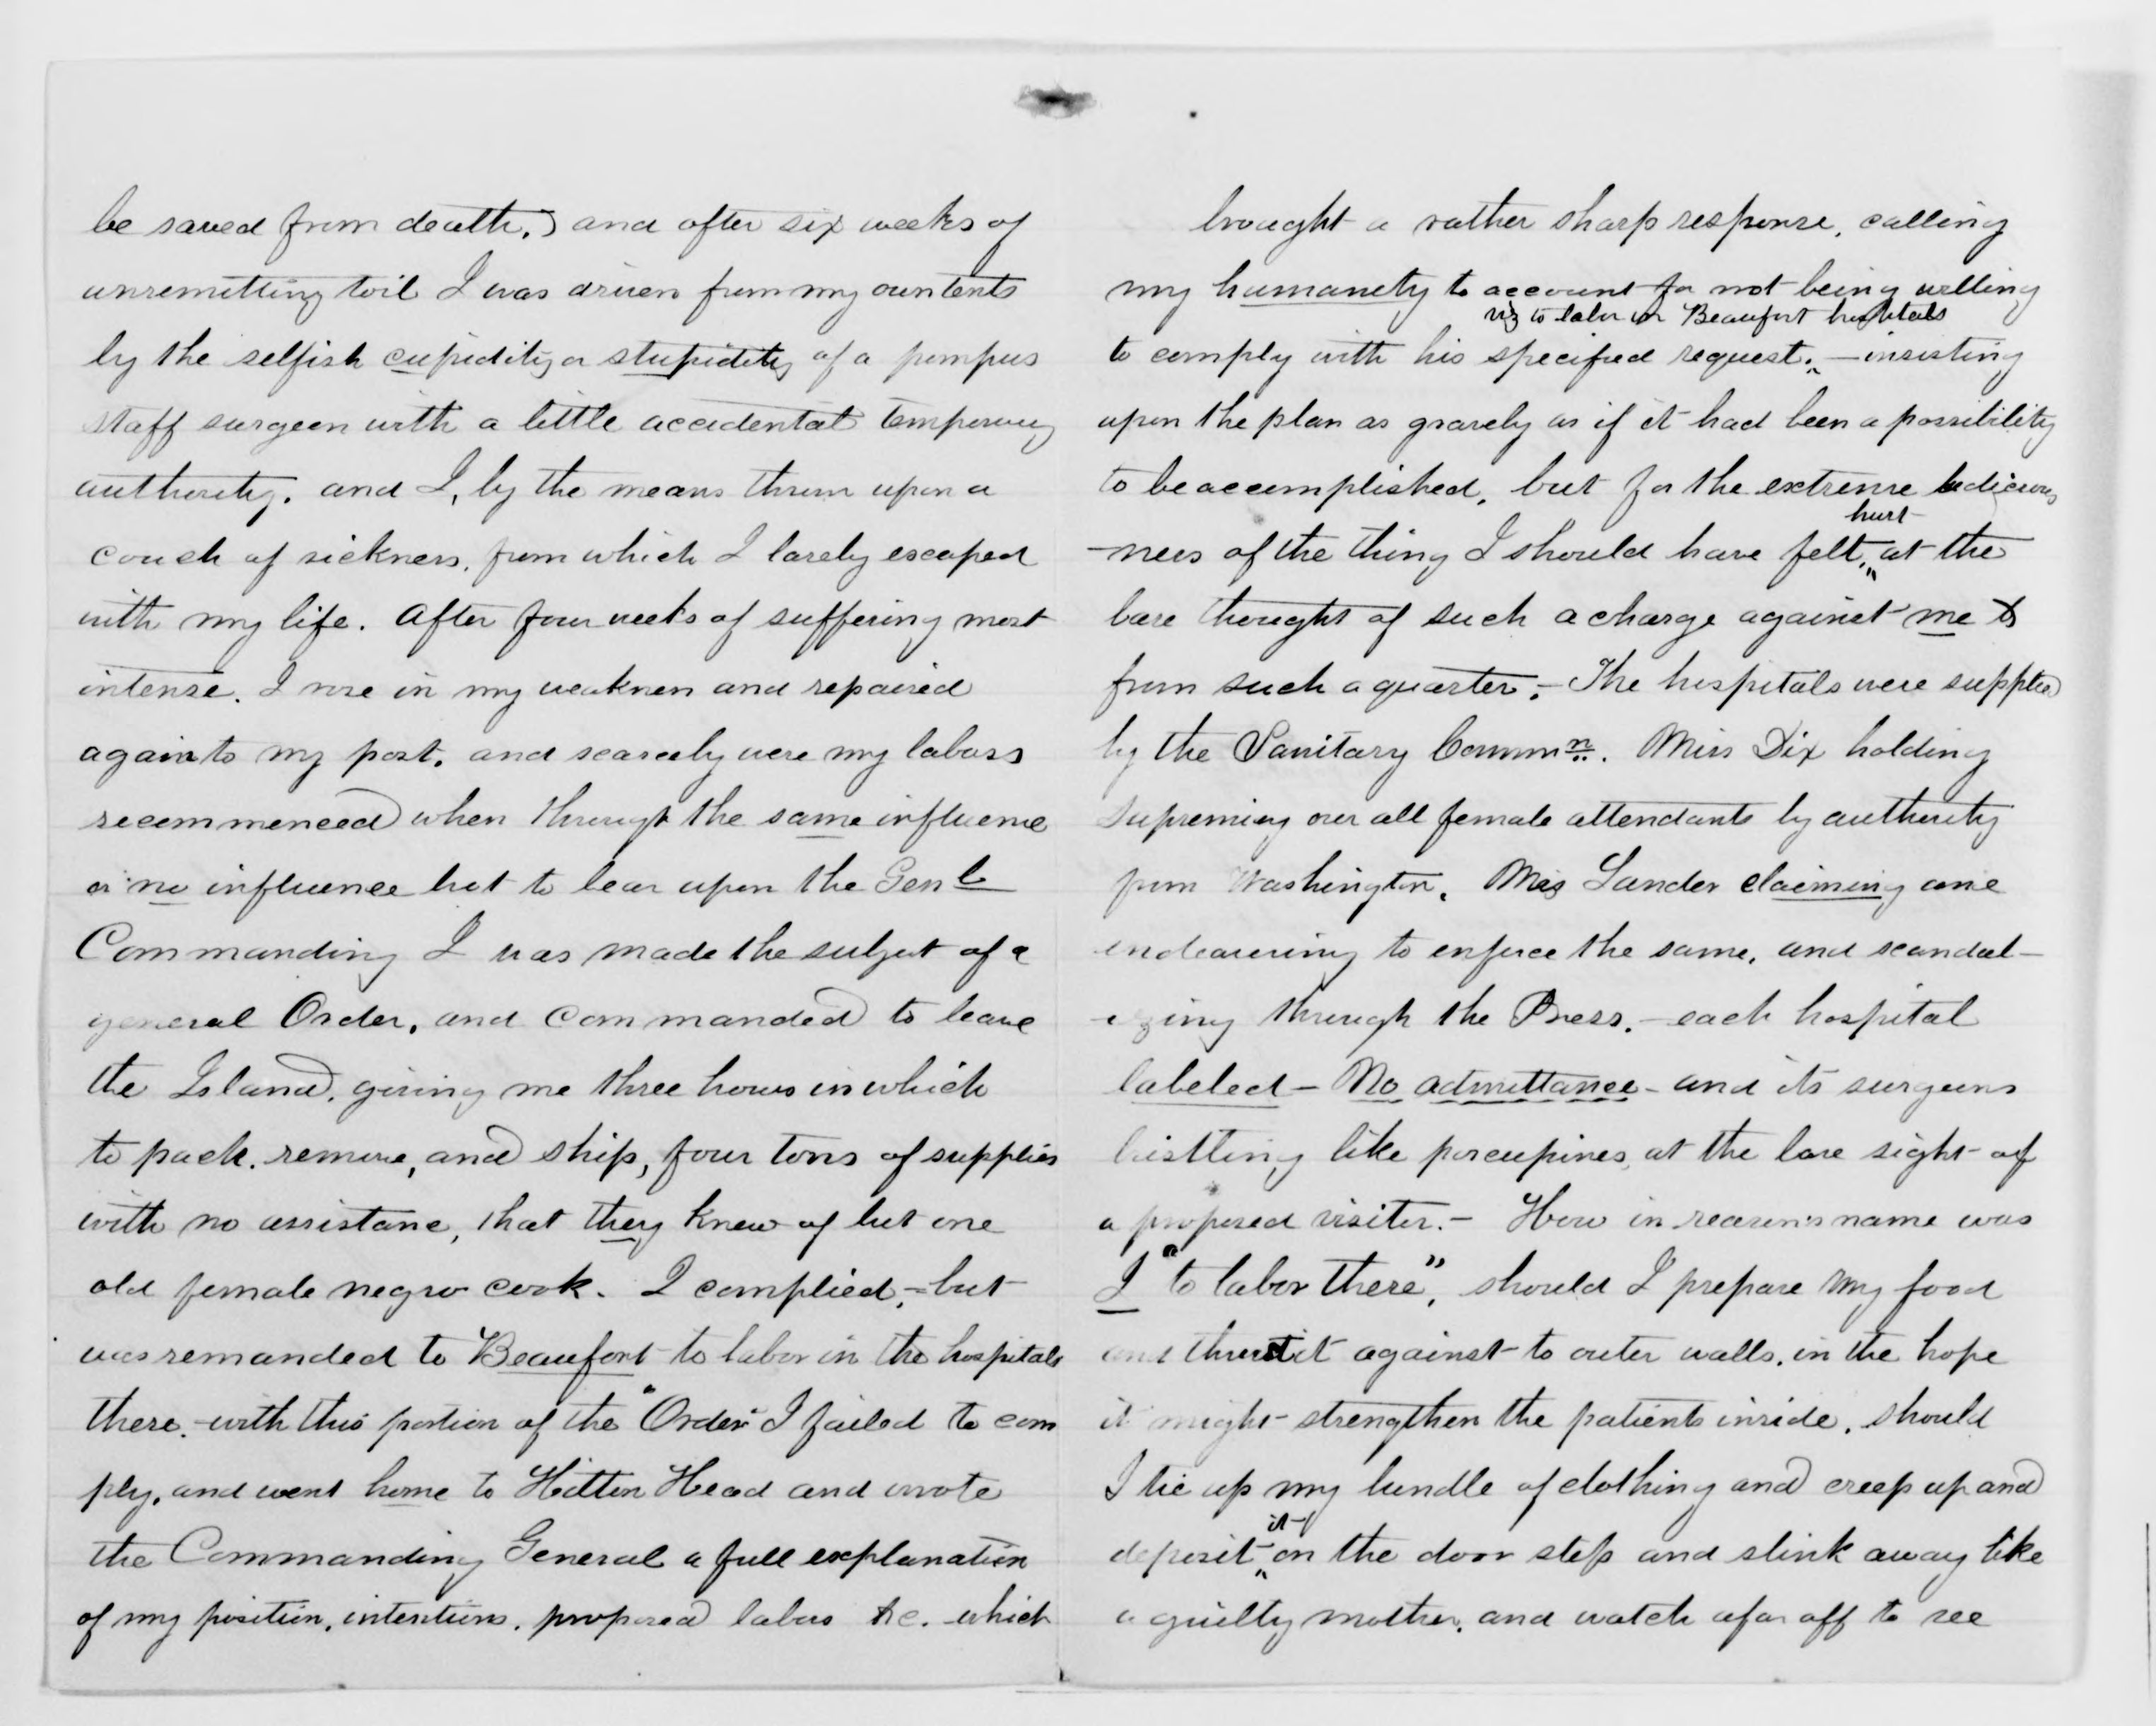 be saved from death,) and after six weeks of
unremitting toil I was driven from my own tents
by the selfish cupidity or stupidity of a pompus
staff surgeon with a little accidental temporary
authority. and I, by the means thrown upon a
couch of sickness, from which I barely escaped
with my life. After four weeks of suffering most
intense. I rose in my weakness and repaired
again to my post. and scarcely were my labors
recommenced when through the same influence
or no influence brot to bear upon the Genl
Commanding I was made the subject of a
general Order, and commanded to leave
the Island, giving me three hours in which
to pack, remove, and ship, four tons of supplies
with no assistane, that they knew of but one
old female negro cook. I complied, - but
was remanded to Beaufort to labor in the hospitals
there. - with this portion of the "Order" I failed to com
ply, and went home to Hilton Head and wrote
the Commanding General a full explanation
of my position, intentions, proposed labors &c. which
brought a rather sharp response, calling
my humanity to account for not being willing
viz to labor in Beaufort hospitals
to comply with his specified request. - insisting
upon the plan as gravely as if it had been a possibility
to be accomplished, but for the extreme ludicrous
hurt
-ness of the thing I should have felt, at the
bare thought of such a charge against me &
from such a quarter. - The hospitals were supplied
by the Sanitary Commn. Miss Dix holding
supremicy over all female attendants by authority
from Washington, Mrs Lander claiming and
endeavering to enforce the same, and scandal-
-izing through the Press, - each hospital
labeled - No admittance - and its surgeons
bristling like porcupines, at the bare sight of
a proposed visiter. - How in reason's name was
I "to labor there", should I prepare my food
and thrust it against to outer walls, in the hope
it might strengthen the patients inside, should
I tie up my bundle of clothing and creep up and
it
deposit on the door step and slink away like
a guilty mother, and watch afar off to see